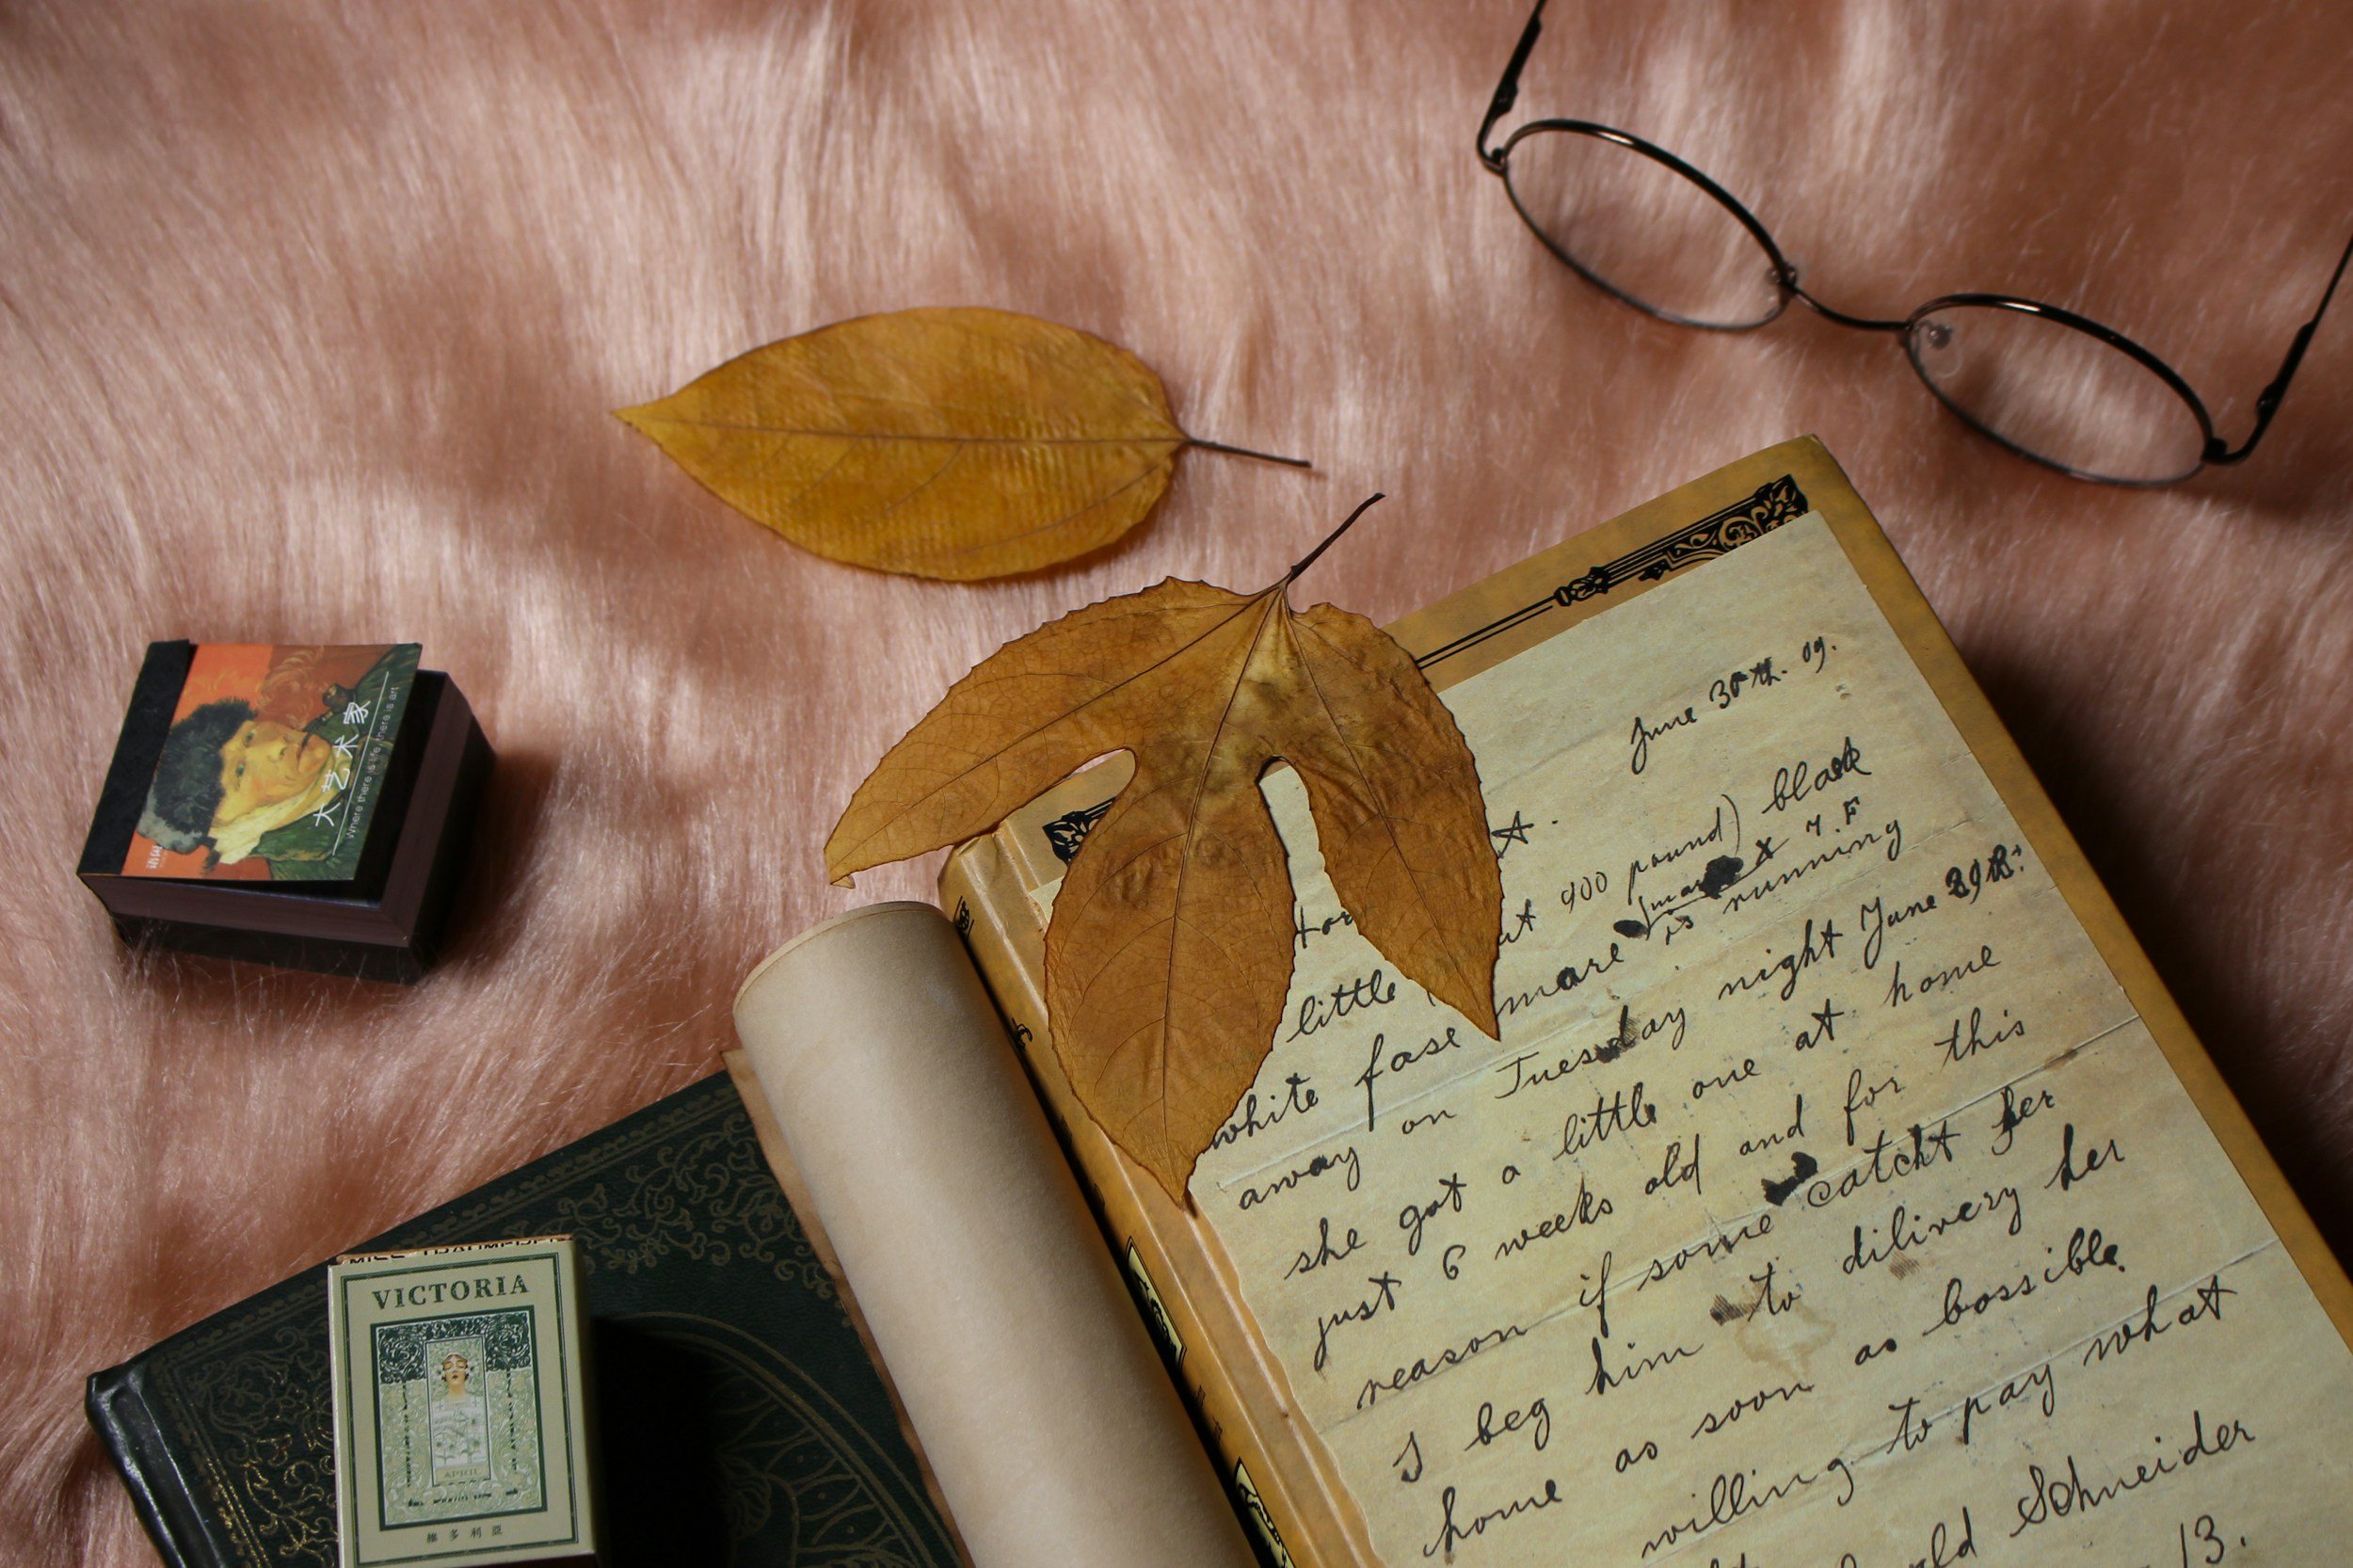 大艺术家
Where there is life, there is art
VICTORIA
APRIL
維多利亞
June 30th. 09.
little
900 pound) black
white fase mare
mark X 7. F
is running
away on Tuesday night June 29th.
she got a little one at home
just 6 weeks old and for this
reason if some catcht her
I beg him to dilivery her
home as soon as bossible.
willing to pay what
Schneider
13.